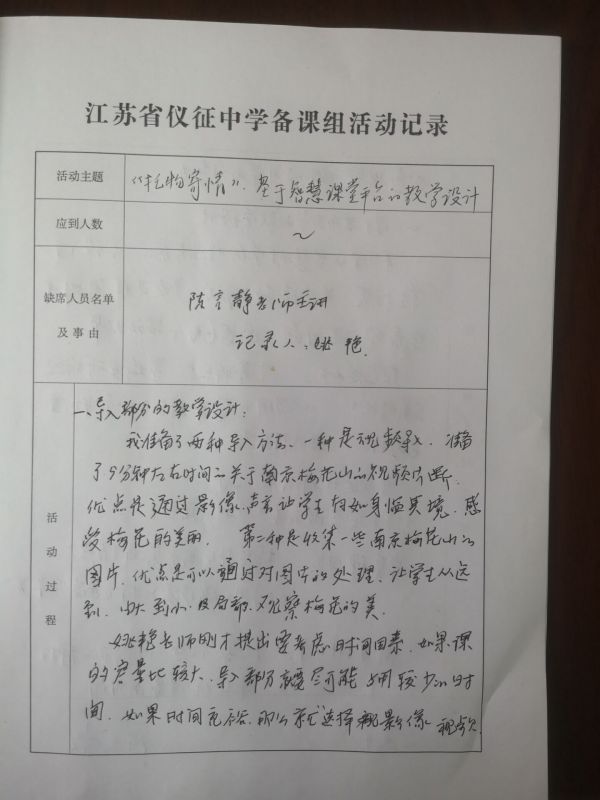 江苏省仪征中学备课组活动记录
活动主题
《托物寄情》、基于智慧课堂平台的教学设计
应到人数
2
缺席人员名单
及事由
陆言静老师主讲
记录人：姚艳
活动过程
一、导入部分的教学设计：
我准备了两种导入方法、一种是视频导入．准备
了5分钟左右时间的关于南京梅花山的视频片断．
优点是通过影像、声音让学生有如身临其境．感
受梅花的美丽． 第二种是收集一些南京梅花山的
图片．优点是可以通过对图片的处理、让学生从远
到、由大到小、及局部、观察梅花的美．
姚艳老师刚才提出要考虑时间因素．如果课
的容量比较大、导入部分就要尽可能 用较少的时
间．如果时间充裕．那么就选择 影像 视频